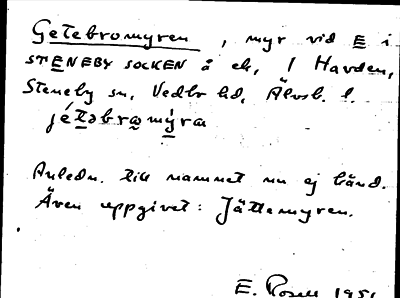 Getebromyren, myr vid E i
STENEBY SOCKEN å ek, / Havden,
Steneby sn, Vedbo hd, Älvsb. l.
jétəbramýra
Anledn. till namnet nu ej känd.
Även uppgivet: Jättemyren.
E. Rosell 1951